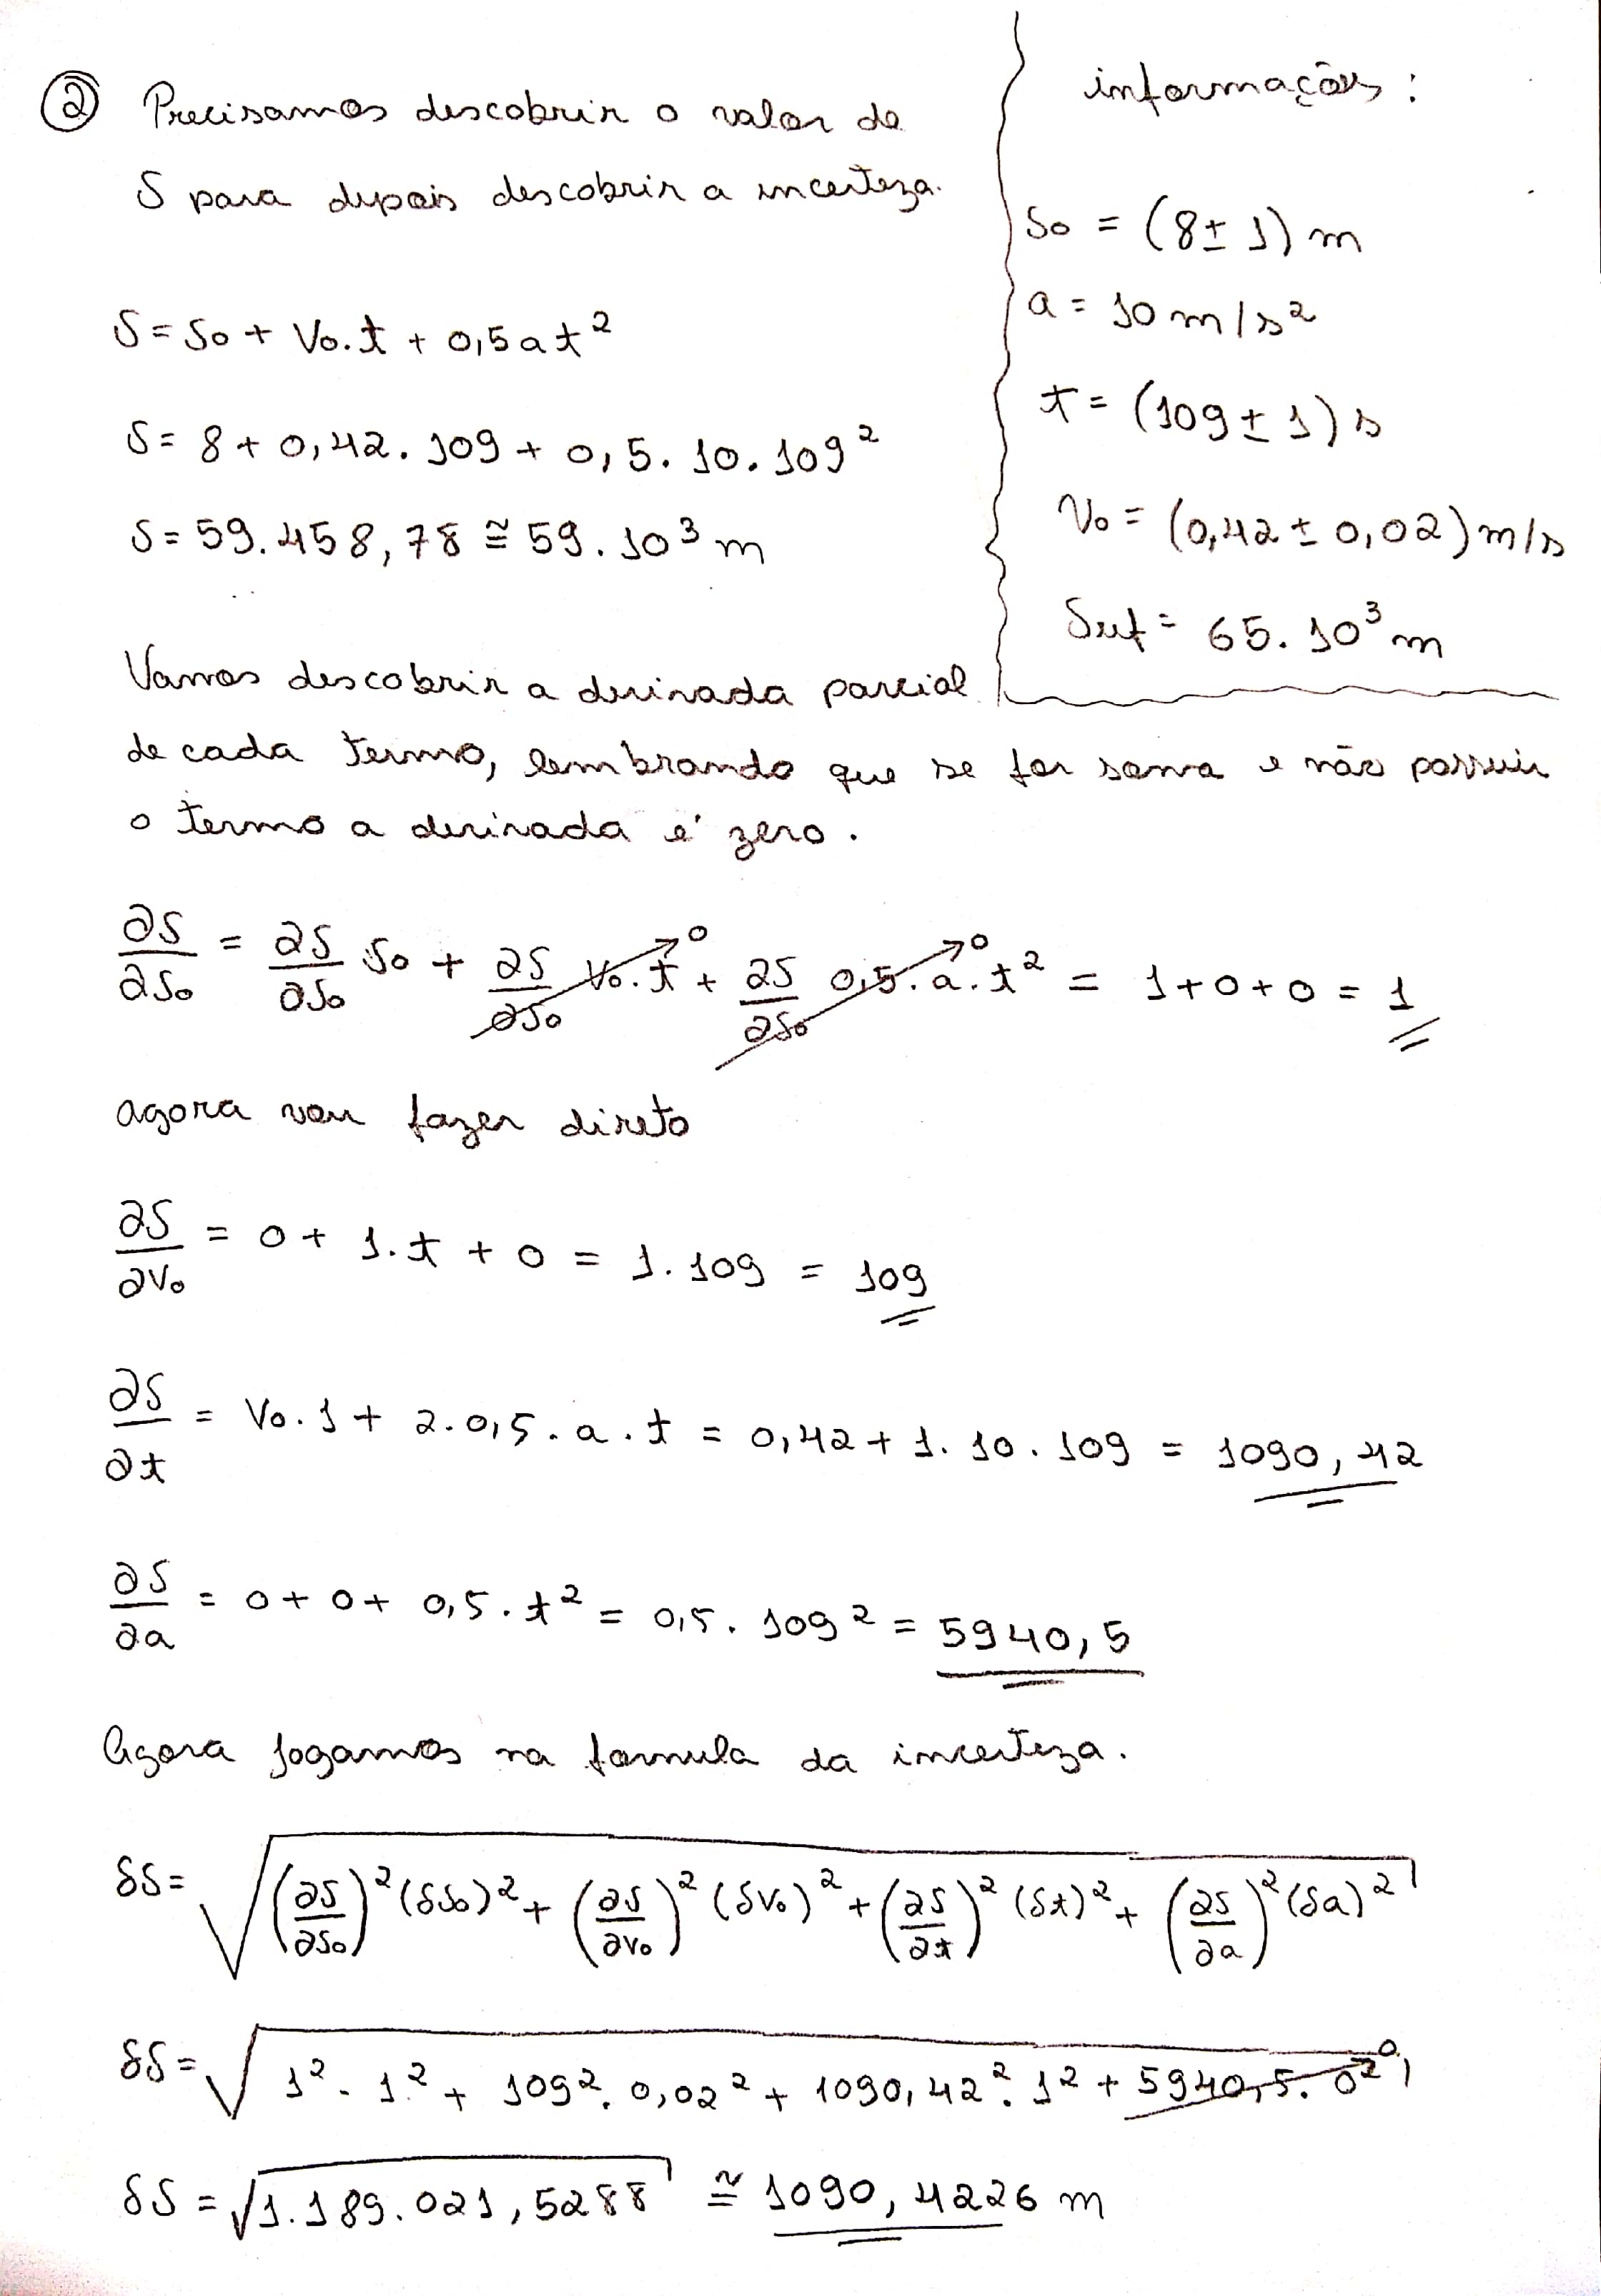 ② Precisamos descobrir o valor de
S para depois descobrir a incerteza.
S = So + Vo.t + 0,5at²
S = 8 + 0,42.109 + 0,5.10.109²
S = 59.458,78 ≅ 59.10³ m
informações:
So = (8 ± 1) m
a = 10 m/s²
t = (109 ± 1) s
Vo = (0,42 ± 0,02) m/s
Sref = 65.10³ m
Vamos descobrir a derivada parcial
de cada termo, lembrando que se for soma e não possuir
o termo a derivada é zero.
∂S/∂So = ∂S/∂So So + ∂S/∂So Vo.t→0 + ∂S/∂So 0,5.a.t²→0 = 1+0+0 = 1
agora vou fazer direto
∂S/∂Vo = 0 + 1.t + 0 = 1.109 = 109
∂S/∂t = Vo.1 + 2.0,5.a.t = 0,42 + 1.10.109 = 1090,42
∂S/∂a = 0 + 0 + 0,5.t² = 0,5.109² = 5940,5
Agora jogamos na formula da incerteza.
δS = √((∂S/∂So)²(δSo)² + (∂S/∂Vo)²(δVo)² + (∂S/∂t)²(δt)² + (∂S/∂a)²(δa)²)
δS = √(1².1² + 109².0,02² + 1090,42².1² + 5940,5.0²→0)
δS = √1.189.021,5288 ≅ 1090,4226 m